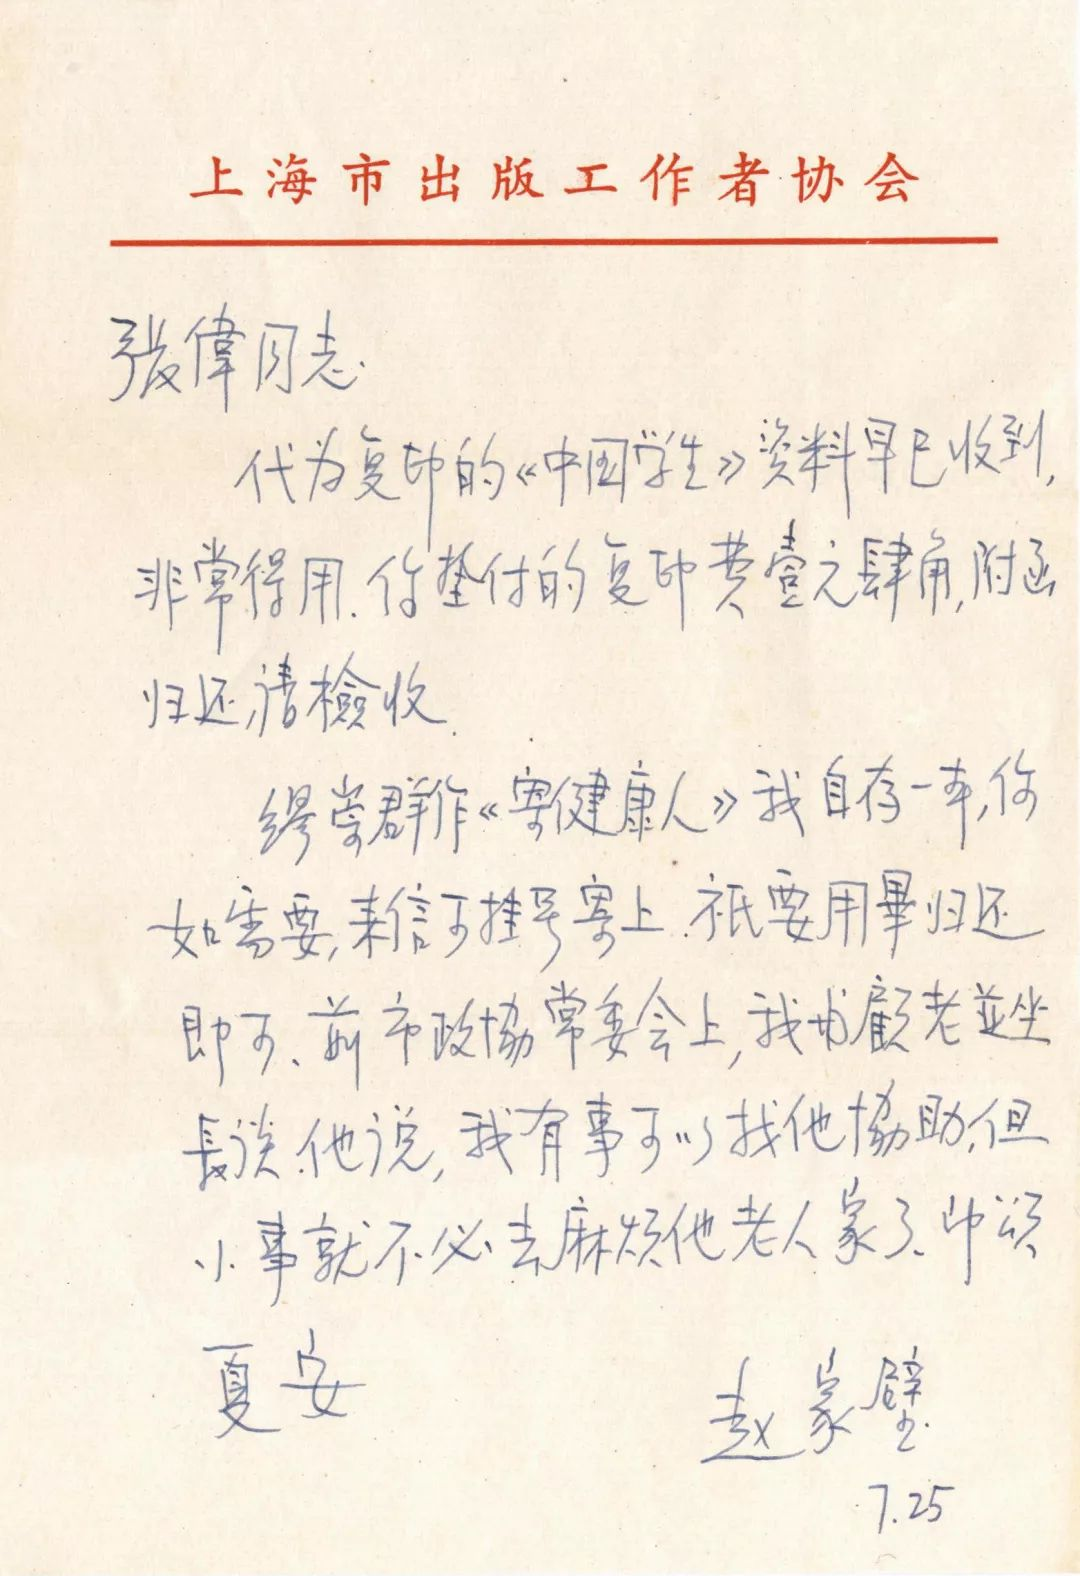 上海市出版工作者协会
张偉同志.
代为复印的《中国学生》资料早已收到,
非常得用.你垫付的复印费壹元肆角,附函
归还,请檢收.
缪崇群作《寄健康人》我自存一本,你
如需要,来信可挂号寄上.祇要用畢归还
即可、前市政協常委会上,我与顧老並坐
長谈.他说,我有事可以找他協助,但
小事就不必去麻烦他老人家了、即頌
夏安
赵家璧
7.25